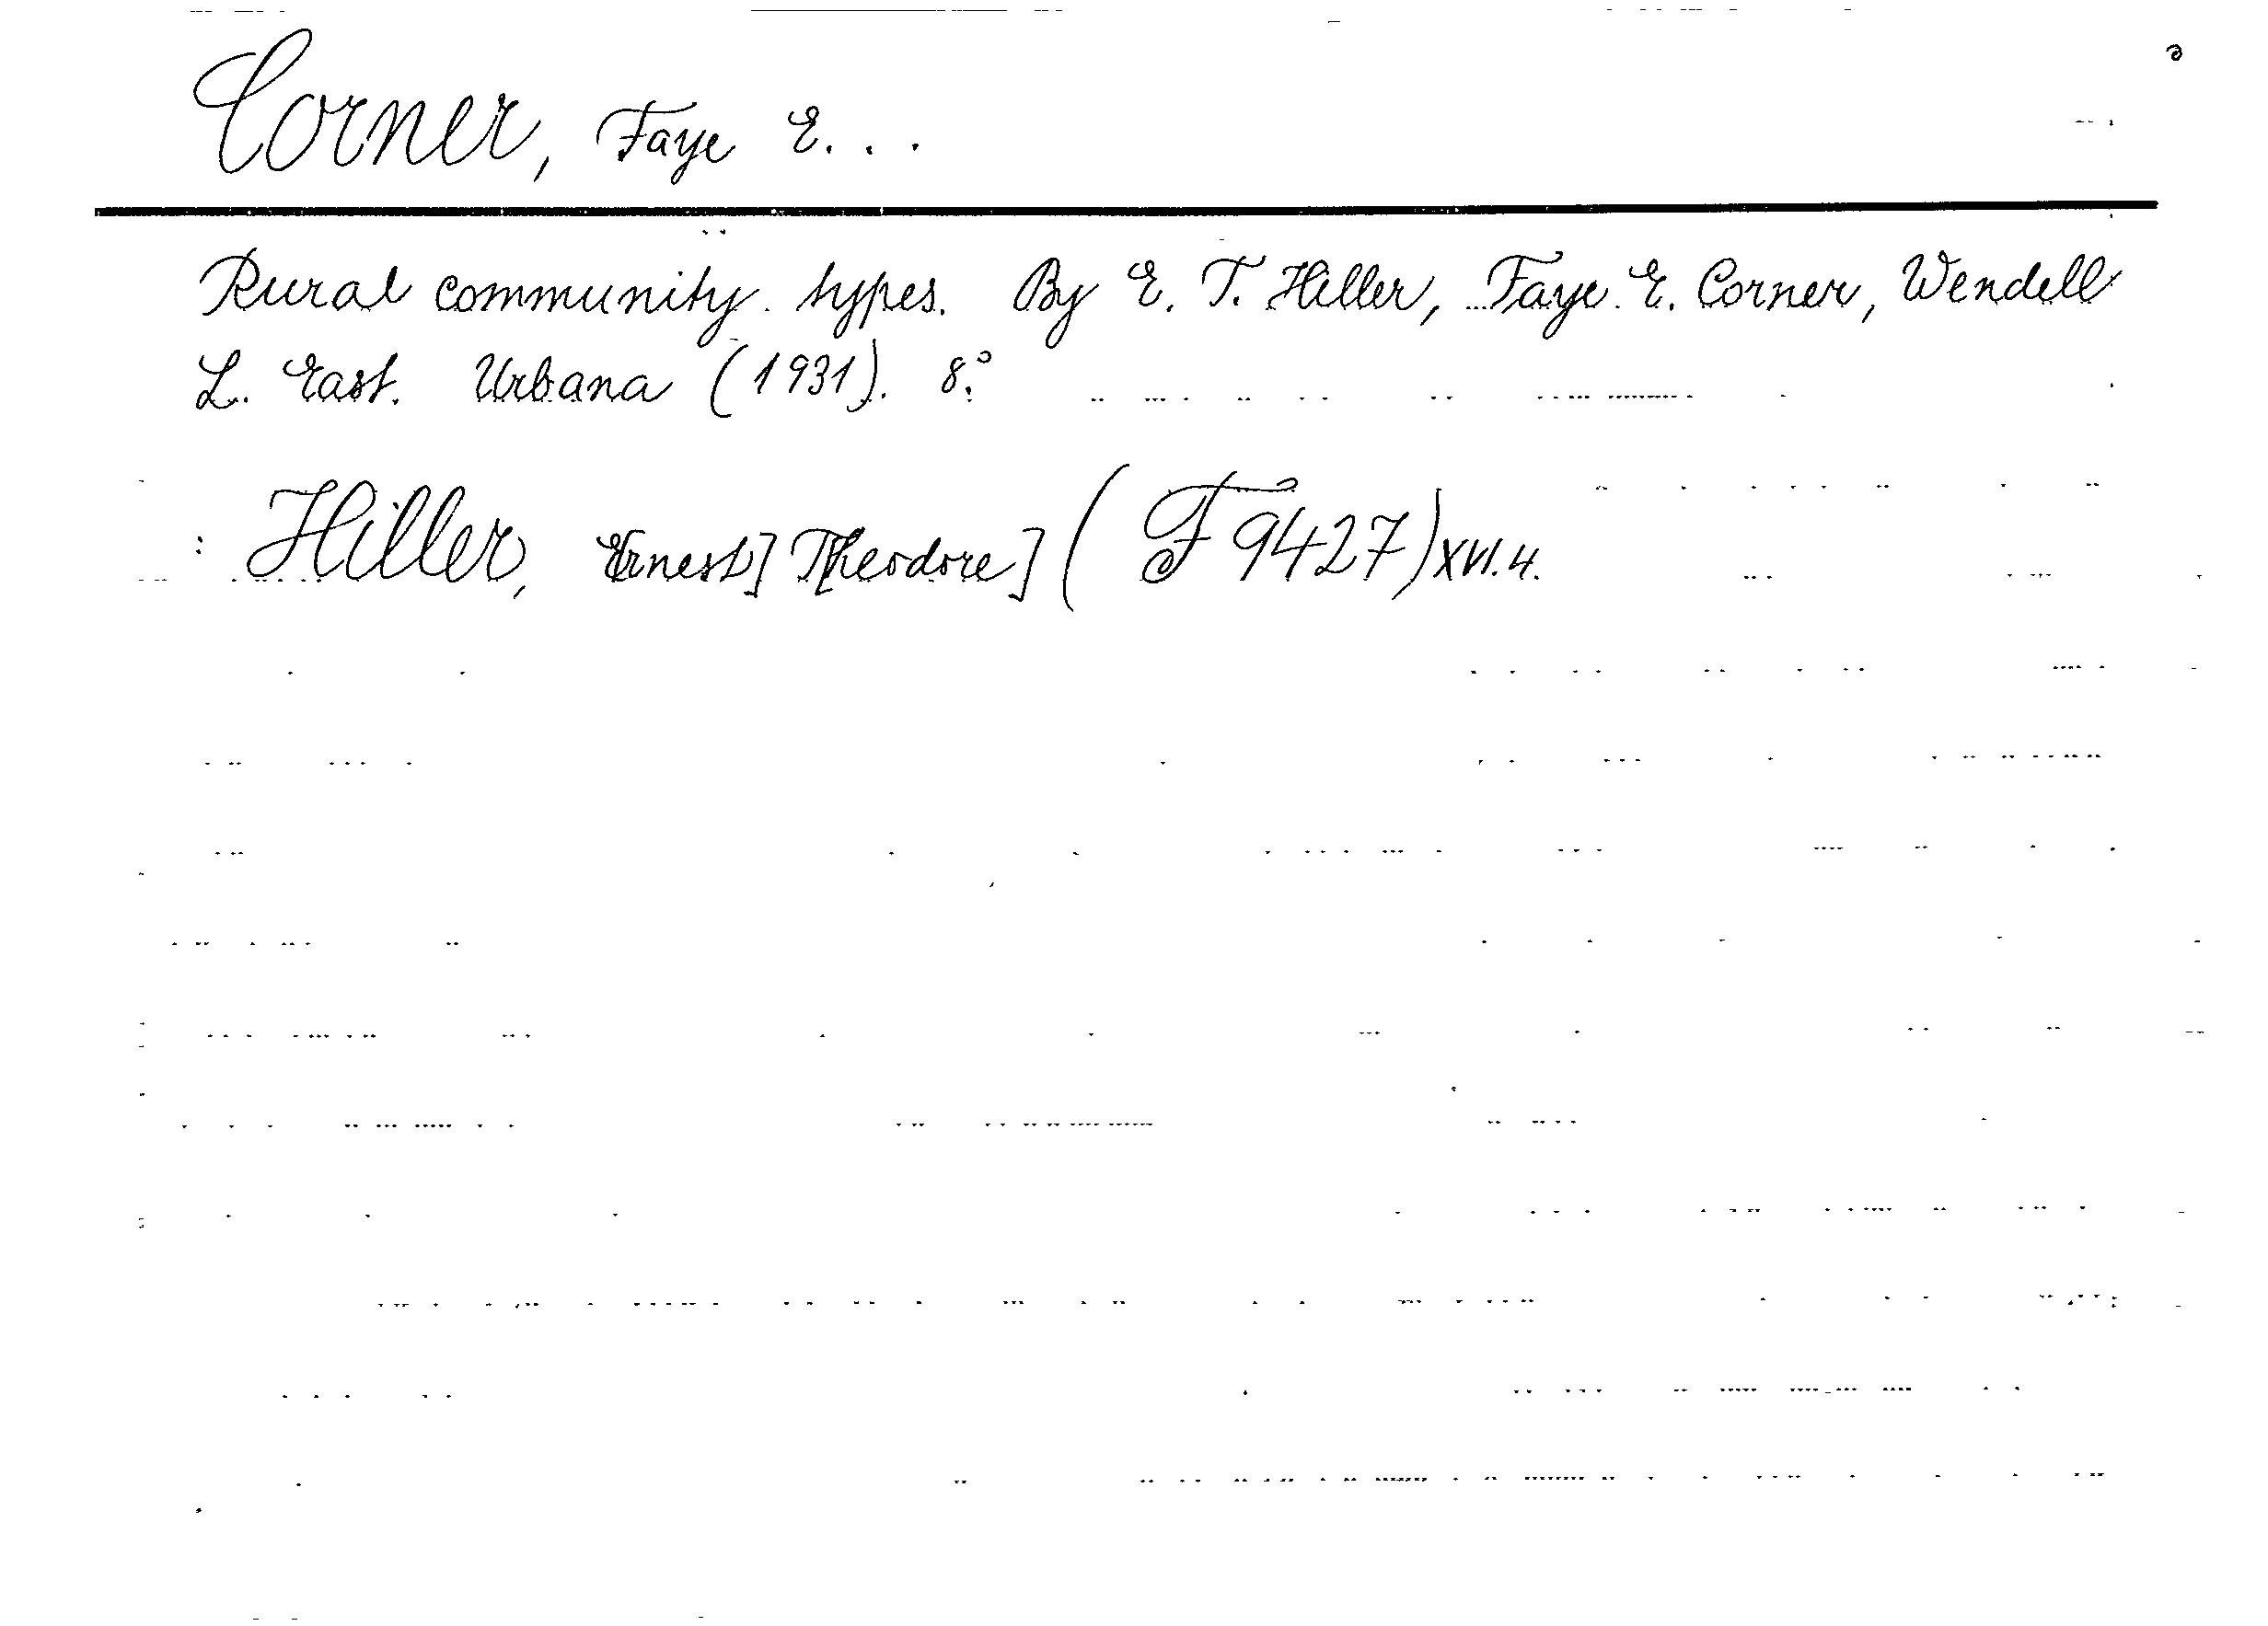 Corner, Faye E...
Rural community types. By E. T. Hiller, Faye E. Corner, Wendell
L. East. Urbana (1931). 8°.
: Hiller, E[rnest] T[heodore] (F 9427) XVI.4.